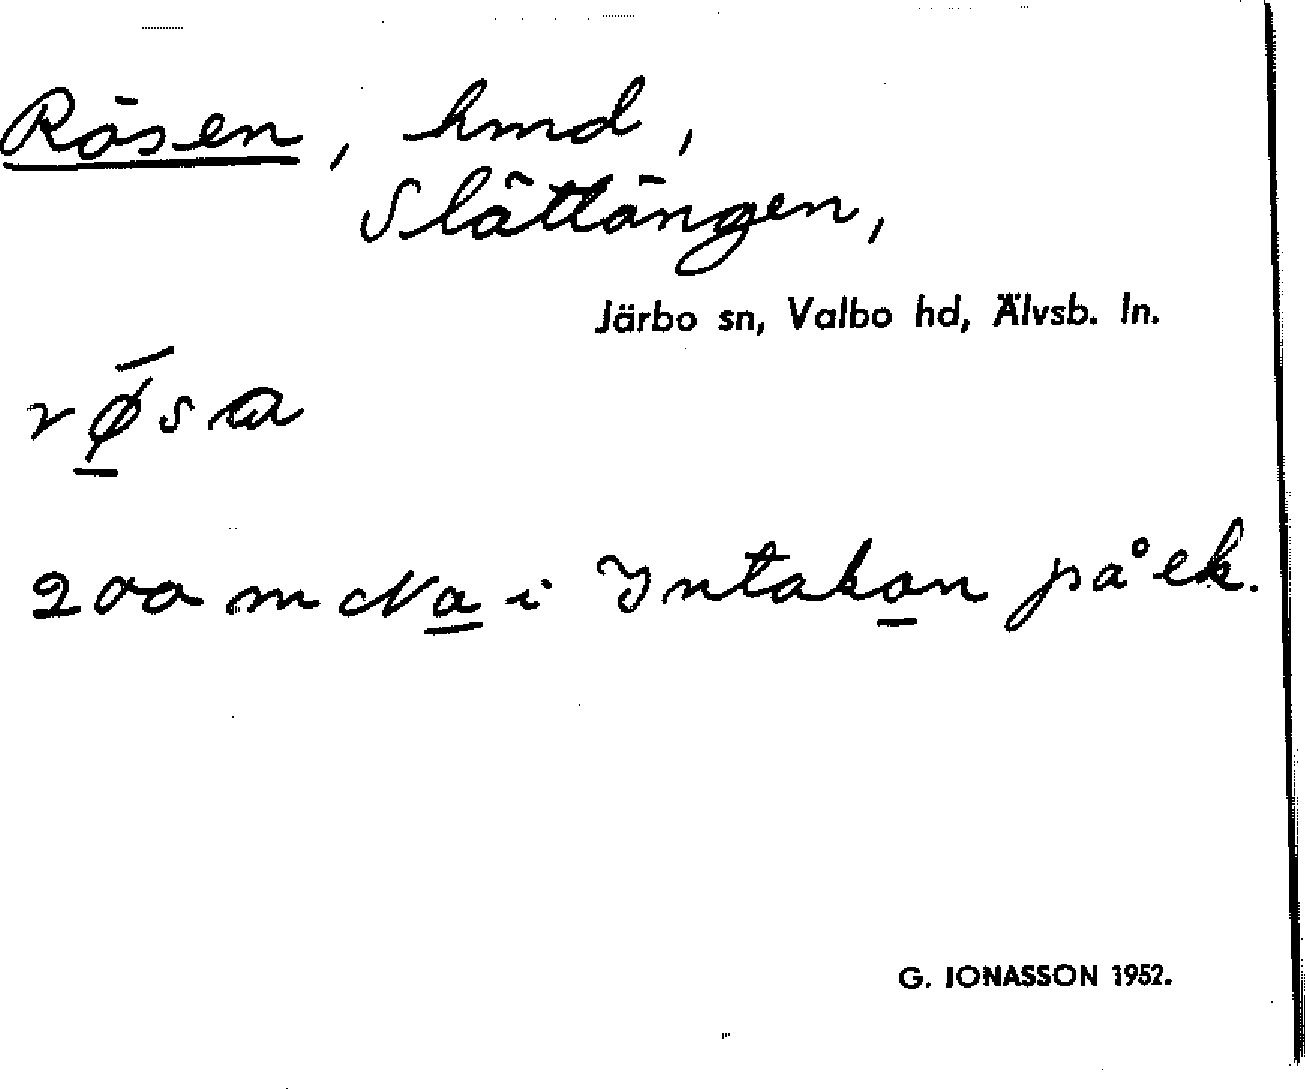 Rösen, hmd,
Slättängen,
Järbo sn, Valbo hd, Älvsb. ln.
rǿ̱sa
200 m N a̱ i Intako̱n på ek.
G. JONASSON 1952.